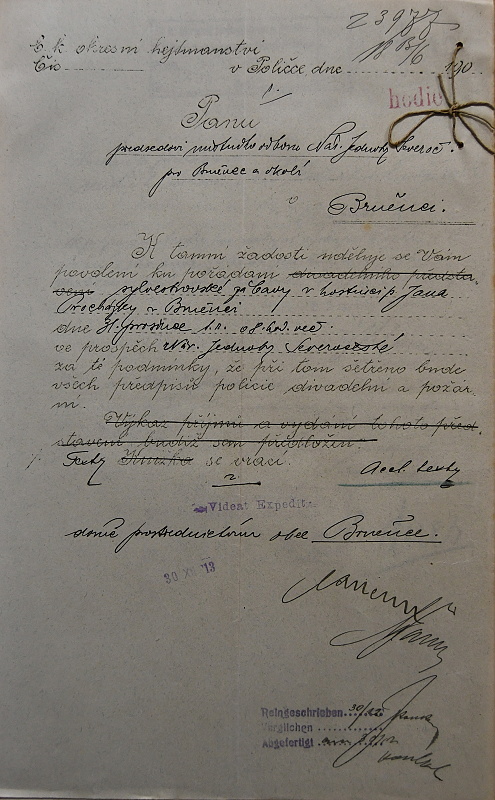 23977
C. k. okresní hejtmanství
Čís
v Poličce dne 190
hodie
1.
Panu
předsedovi místního odboru Nár. Jednoty Severoč.
pro Brněnec a okolí
v
Brněnci.
K tamní žádosti uděluje se Vám
povolení ku pořádání divadelního předsta-
vení sylvestrovské zábavy v hostinci p. Jana
Procházky v Brněnci
dne 31. prosince t.r. o 8. hod. več.
ve prospěch Nár. Jednoty Severočeské
za té podmínky, že při tom šetřeno bude
všech předpisů policie divadelní a požár-
ní.
Výkaz příjmů a vydání tohoto před-
stavení budiž sem předložen.
Texty Knížka se vrací.
2.
Videat Expedit.
domě prostřednictvím obce Brněnce.
30 XII 13
Reingeschrieben 30/12
Verglichen
Abgefertigt